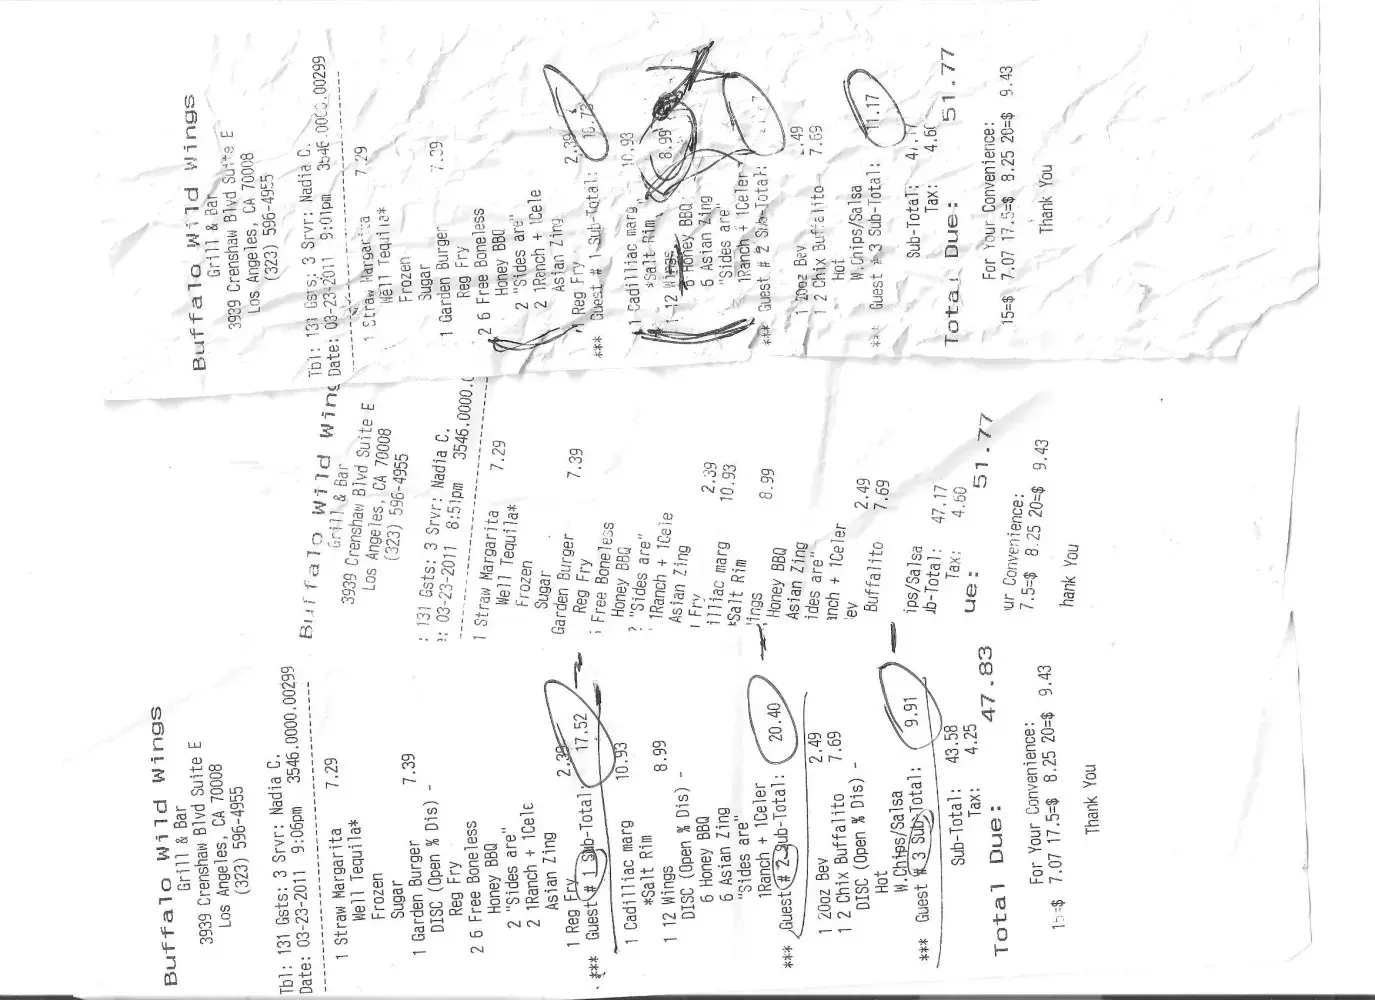 Buffalo Wild Wings
Grill & Bar
3939 Crenshaw Blvd Suite E
Los Angeles, CA 70008
(323) 596-4955
Tbl: 131 Gsts: 3 Srvr: Nadia C.
Date: 03-23-2011 9:01pm
1 Straw Margarita 7.29
Well Tequila*
Frozen
Sugar
1 Garden Burger 7.39
Reg Fry
2 6 Free Boneless
Honey BBQ
2 "Sides are"
2 1Ranch + 1Cele
Asian Zing
1 Reg Fry 2.39
*** Guest # 1 Sub-Total:
1 Cadilliac marg 10.93
*Salt Rim
1 12 Wings 8.99
6 Honey BBQ
6 Asian Zing
"Sides are"
1Ranch + 1Celer
*** Guest # 2 Sub-Total:
1 20oz Bev 2.49
1 2 Chix Buffalito 7.69
Hot
W.Chips/Salsa
*** Guest # 3 Sub-Total: 11.17
Sub-Total: 47.17
Tax: 4.60
Total Due: 51.77
For Your Convenience:
15=$ 7.07 17.5=$ 8.25 20=$ 9.43
Thank You
Buffalo Wild Wing
Grill & Bar
3939 Crenshaw Blvd Suite E
Los Angeles, CA 70008
(323) 596-4955
: 131 Gsts: 3 Srvr: Nadia C.
: 03-23-2011 8:51pm 3546.0000.
1 Straw Margarita 7.29
Well Tequila*
Frozen
Sugar
Garden Burger 7.39
Reg Fry
Free Boneless
Honey BBQ
"Sides are"
1Ranch + 1Cele
Asian Zing
Fry 2.39
illiac marg 10.93
*Salt Rim
ings 8.99
Honey BBQ
Asian Zing
ides are"
anch + 1Celer
ev 2.49
Buffalito 7.69
ips/Salsa
ub-Total: 47.17
Tax: 4.60
ue: 51.77
ur Convenience:
7.5=$ 8.25 20=$ 9.43
hank You
Buffalo Wild Wings
Grill & Bar
3939 Crenshaw Blvd Suite E
Los Angeles, CA 70008
(323) 596-4955
Tbl: 131 Gsts: 3 Srvr: Nadia C.
Date: 03-23-2011 9:06pm 3546.0000.00299
1 Straw Margarita 7.29
Well Tequila*
Frozen
Sugar
1 Garden Burger 7.39
DISC (Open % Dis) -
Reg Fry
2 6 Free Boneless
Honey BBQ
2 "Sides are"
2 1Ranch + 1Cele
Asian Zing
1 Reg Fry 2.39
*** Guest # 1 Sub-Total: 17.52
1 Cadilliac marg 10.93
*Salt Rim
1 12 Wings 8.99
DISC (Open % Dis) -
6 Honey BBQ
6 Asian Zing
"Sides are"
1Ranch + 1Celer
*** Guest # 2 Sub-Total: 20.40
1 20oz Bev 2.49
1 2 Chix Buffalito 7.69
DISC (Open % Dis) -
Hot
W.Chips/Salsa
*** Guest # 3 Sub-Total: 9.91
Sub-Total: 43.58
Tax: 4.25
Total Due: 47.83
For Your Convenience:
15=$ 7.07 17.5=$ 8.25 20=$ 9.43
Thank You